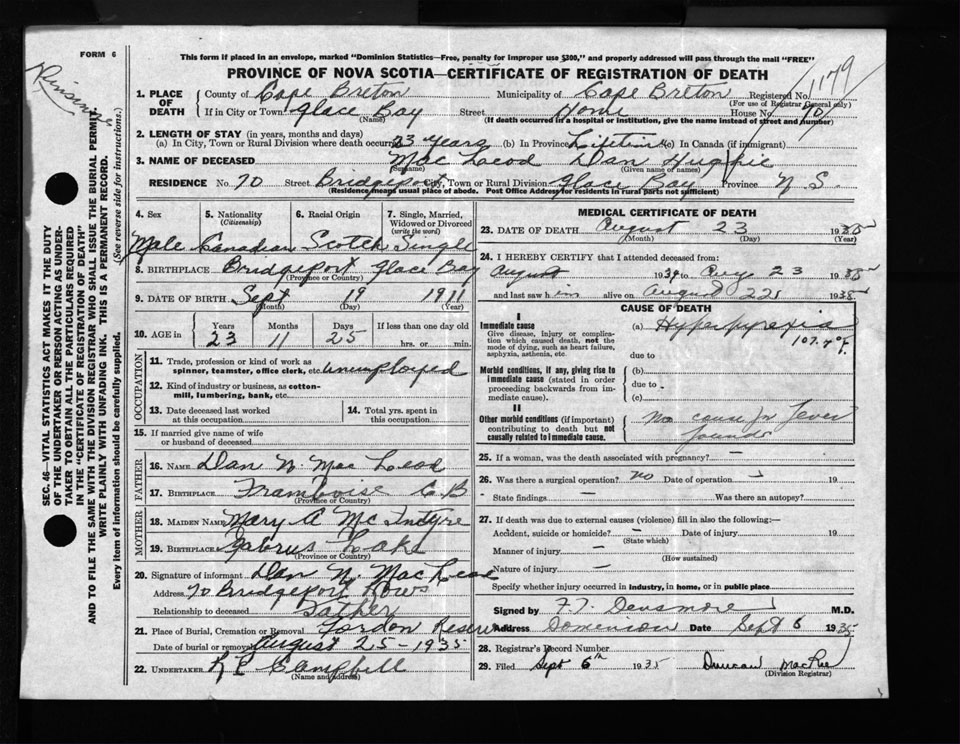 FORM 6
This form if placed in an envelope, marked "Dominion Statistics—Free, penalty for improper use $300," and properly addressed will pass through the mail "FREE"
PROVINCE OF NOVA SCOTIA—CERTIFICATE OF REGISTRATION OF DEATH
1179
1. PLACE OF DEATH
County of Cape Breton Municipality of Cape Breton Registered No.
(For use of Registrar General only)
If in City or Town Glace Bay Street Home House No. 70
(Name) (If death occurred in a hospital or institution, give the name instead of street and number)
2. LENGTH OF STAY (in years, months and days)
(a) In City, Town or Rural Division where death occurred 23 years (b) In Province Lifetime (c) In Canada (if immigrant)
3. NAME OF DECEASED Mac Leod Dan Hughie
(Surname) (Given name or names)
RESIDENCE No. 70 Street Bridgeport City, Town or Rural Division Glace Bay Province N S.
(Residence means usual place of abode. Post Office Address for residents in rural parts not sufficient)
4. Sex
5. Nationality
(Citizenship)
6. Racial Origin
7. Single, Married, Widowed or Divorced
(write the word)
Male Canadian Scotch Single
8. BIRTHPLACE Bridgeport Glace Bay
(Province or Country)
9. DATE OF BIRTH Sept 19 1911
(Month) (Day) (Year)
10. AGE in
Years Months Days If less than one day old
23 11 25 hrs. or min.
OCCUPATION
11. Trade, profession or kind of work as spinner, teamster, office clerk, etc. Unemployed
12. Kind of industry or business, as cotton-mill, lumbering, bank, etc.
13. Date deceased last worked at this occupation
14. Total yrs. spent in this occupation
15. If married give name of wife or husband of deceased
FATHER
16. NAME Dan N. Mac Leod
17. BIRTHPLACE Framboise C B
(Province or Country)
MOTHER
18. MAIDEN NAME Mary A Mc Intyre
19. BIRTHPLACE Gabarus Lake
(Province or Country)
20. Signature of informant Dan N. Mac Leod
Address 70 Bridgeport Rows
Relationship to deceased Father
21. Place of Burial, Cremation or Removal Gordon Reserve
Date of burial or removal August 25 - 1935
22. UNDERTAKER Campbell
(Name and address)
MEDICAL CERTIFICATE OF DEATH
23. DATE OF DEATH August 23 1935
(Month) (Day) (Year)
24. I HEREBY CERTIFY that I attended deceased from:
August 1934 to Aug 23 1935
and last saw him alive on August 22 1935
CAUSE OF DEATH
I
Immediate cause
Give disease, injury or complication which caused death, not the mode of dying, such as heart failure, asphyxia, asthenia, etc.
(a) Hyperpyrexis
107.4° F.
due to
Morbid conditions, if any, giving rise to immediate cause (stated in order proceeding backwards from immediate cause).
(b)
due to
(c)
II
Other morbid conditions (if important) contributing to death but not causally related to immediate cause.
No cause for fever
found
25. If a woman, was the death associated with pregnancy? —
26. Was there a surgical operation? no Date of operation 19
State findings — Was there an autopsy?
27. If death was due to external causes (violence) fill in also the following:—
Accident, suicide or homicide? — Date of injury 19
(State which)
Manner of injury —
(How sustained)
Nature of injury —
Specify whether injury occurred in industry, in home, or in public place
Signed by F. T. Densmore M.D.
Address Dominion Date Sept 6 1935
28. Registrar's Record Number
29. Filed Sept 6th 1935 Duncan MacRae
(Division Registrar)
SEC. 46—VITAL STATISTICS ACT MAKES IT THE DUTY
OF THE UNDERTAKER OR PERSON ACTING AS UNDER-
TAKER TO OBTAIN ALL THE PARTICULARS REQUIRED
IN THE "CERTIFICATE OF REGISTRATION OF DEATH"
AND TO FILE THE SAME WITH THE DIVISION REGISTRAR WHO SHALL ISSUE THE BURIAL PERMIT.
WRITE PLAINLY WITH UNFADING INK. THIS IS A PERMANENT RECORD.
Every item of information should be carefully supplied. (See reverse side for instructions.)